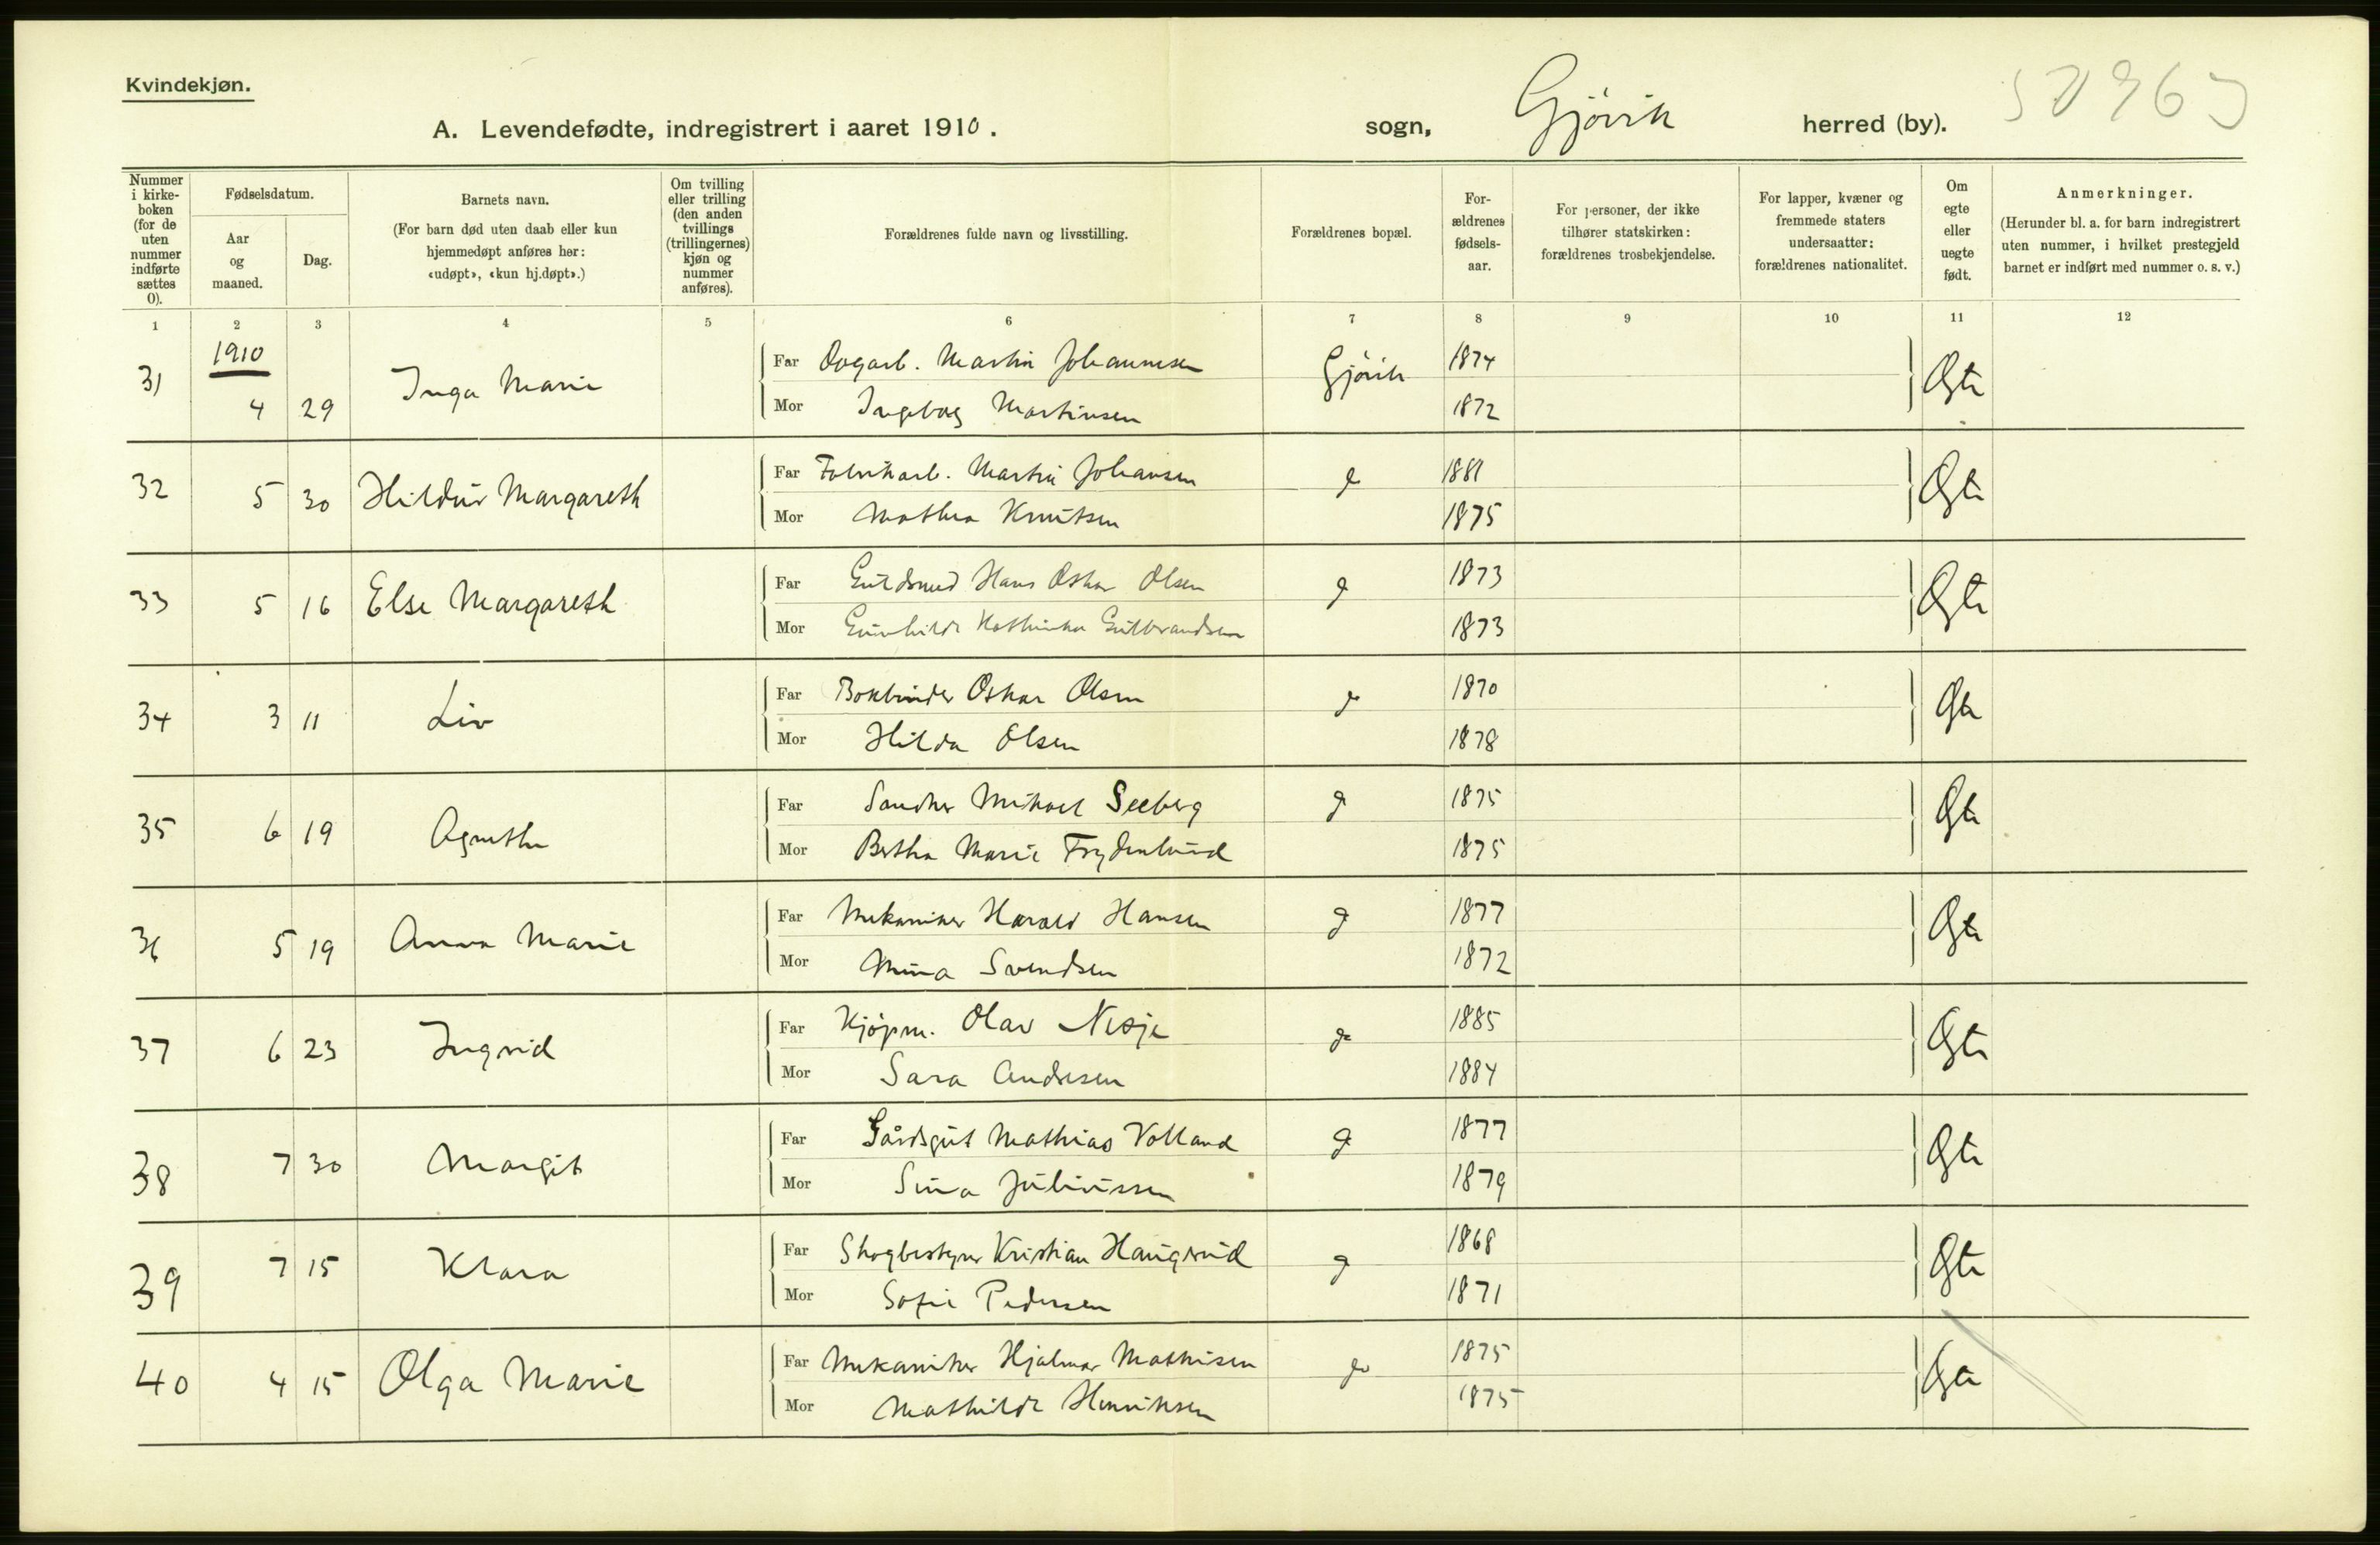 Kvindekjøn.
A. Levendefødte, indregistrert i aaret 1910. sogn, Gjövik herred (by).
Nummer i kirke-boken (for de uten nummer indførte sættes 0).
Fødselsdatum.
Aar og maaned.
Dag.
Barnets navn.
(For barn død uten daab eller kun hjemmedøpt anføres her: «udøpt», «kun hj.døpt».)
Om tvilling eller trilling (den anden tvillings (trillingernes) kjøn og nummer anføres).
Forældrenes fulde navn og livsstilling.
Forældrenes bopæl.
For-ældrenes fødsels-aar.
For personer, der ikke tilhører statskirken: forældrenes trosbekjendelse.
For lapper, kvæner og fremmede staters undersaatter: forældrenes nationalitet.
Om egte eller uegte født.
Anmerkninger.
(Herunder bl. a. for barn indregistrert uten nummer, i hvilket prestegjeld barnet er indført med nummer o. s. v.)
1 2 3 4 5 6 7 8 9 10 11 12
1910
31 4 29 Inga Marie Far Dagarb. Martin Johannesen Gjövik 1874 Egte
Mor Ingeborg Martinsen 1872
32 5 30 Hildur Margareth Far Fabrikarb. Martin Johansen 1881 Egte
Mor Mathea Knutsen 1875
33 5 16 Else Margareth Far Guldsmed Hans Oskar Olsen 1873 Egte
Mor Gunhilde Kathinka Gulbrandsen 1873
34 3 11 Liv Far Bokbinder Oskar Olsen 1870 Egte
Mor Hilda Olsen 1878
35 6 19 Agnethe Far Mikael Seeberg 1875 Egte
Mor Bertha Marie Frydenlund 1875
36 5 19 Anna Marie Far Mekaniker Harald Hansen 1877 Egte
Mor Mina Svendsen 1872
37 6 23 Ingrid Far Kjöpm. Olav Nesje 1885 Egte
Mor Sara Andresen 1884
38 7 30 Margit Far Gårdsgut Mathias Volland 1877 Egte
Mor Sina Juliussen 1879
39 7 15 Klara Far Skogbestyrer Kristian Haugsrud 1868 Egte
Mor Sofie Pedersen 1871
40 4 15 Olga Marie Far Mekaniker Hjalmar Mathisen 1875 Egte
Mor Mathilde Henriksen 1875